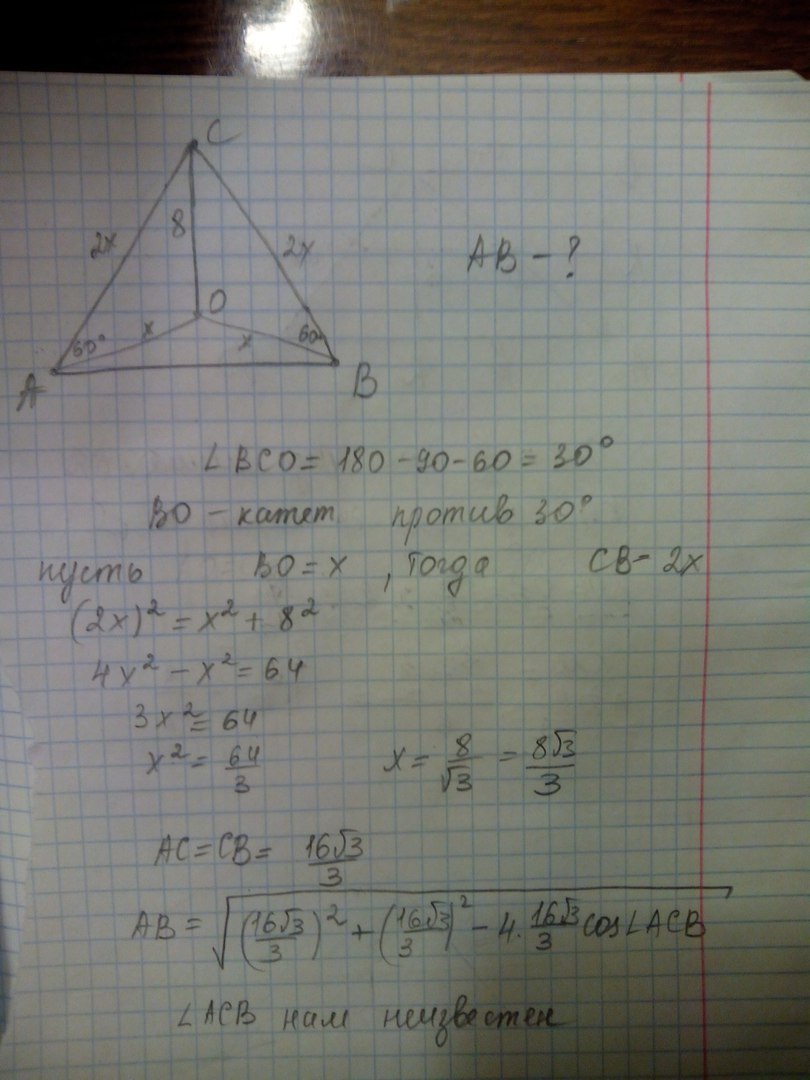 C
8
2x
2x
AB - ?
O
60°
x
x
60°
A
B
∠BCO = 180 - 90 - 60 = 30°
BO - катет против 30°
пусть BO = x , тогда CB = 2x
(2x)² = x² + 8²
4x² - x² = 64
3x² = 64
x² = 64/3 x = 8/√3 = 8√3/3
AC = CB = 16√3/3
AB = √((16√3/3)² + (16√3/3)² - 4 · 16√3/3 cos∠ACB)
∠ACB нам неизвестен